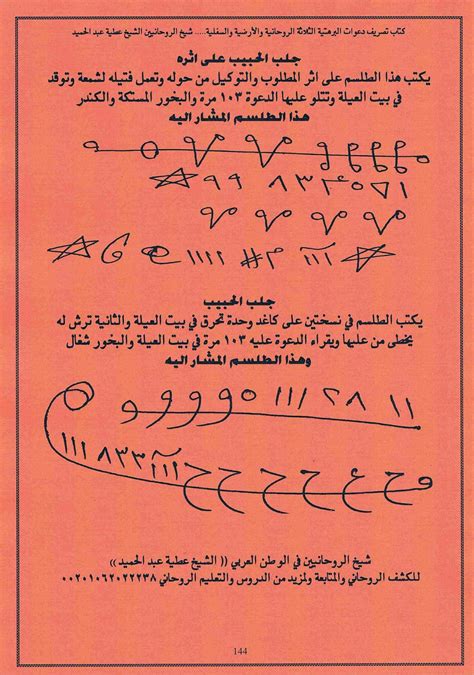 كتاب تصريف دعوات البرهتية الثلاثة الروحانية والأرضية والسفلية.... شيخ الروحانيين الشيخ عطية عبد الحميد
جلب الحبيب على اثره
يكتب هذا الطلسم على اثر المطلوب والتوكيل من حوله وتعمل فتيله لشمعة وتوقد
في بيت العيلة وتتلو عليها الدعوة ١٠٣ مرة والبخور المستكة والكندر
هذا الطلسم المشار اليه
جلب الحبيب
يكتب الطلسم في نسختين على كاغد وحدة تحرق في بيت العيلة والثانية ترش له
يخطى من عليها ويقراء الدعوة عليه ١٠٣ مرة في بيت العيلة والبخور شغال
وهذا الطلسم المشار اليه
١١ ٢٨ ١١١ ٥ و و و و
و ح ع ح ح ح ح ااا ٨٣٣ ١١١
شيخ الروحانيين في الوطن العربي (( الشيخ عطية عبد الحميد ))
للكشف الروحاني والمتابعة ولمزيد من الدروس والتعليم الروحاني ٠٠٢٠١٠٦٢٠٢٢٢٣٨
144